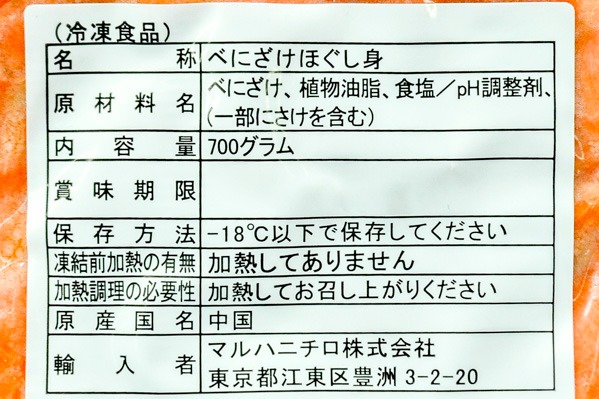 (冷凍食品)
名称 べにざけほぐし身
原材料名 べにざけ、植物油脂、食塩／pH調整剤、
(一部にさけを含む)
内容量 700グラム
賞味期限
保存方法 -18℃以下で保存してください
凍結前加熱の有無 加熱してありません
加熱調理の必要性 加熱してお召し上がりください
原産国名 中国
輸入者 マルハニチロ株式会社
東京都江東区豊洲3-2-20